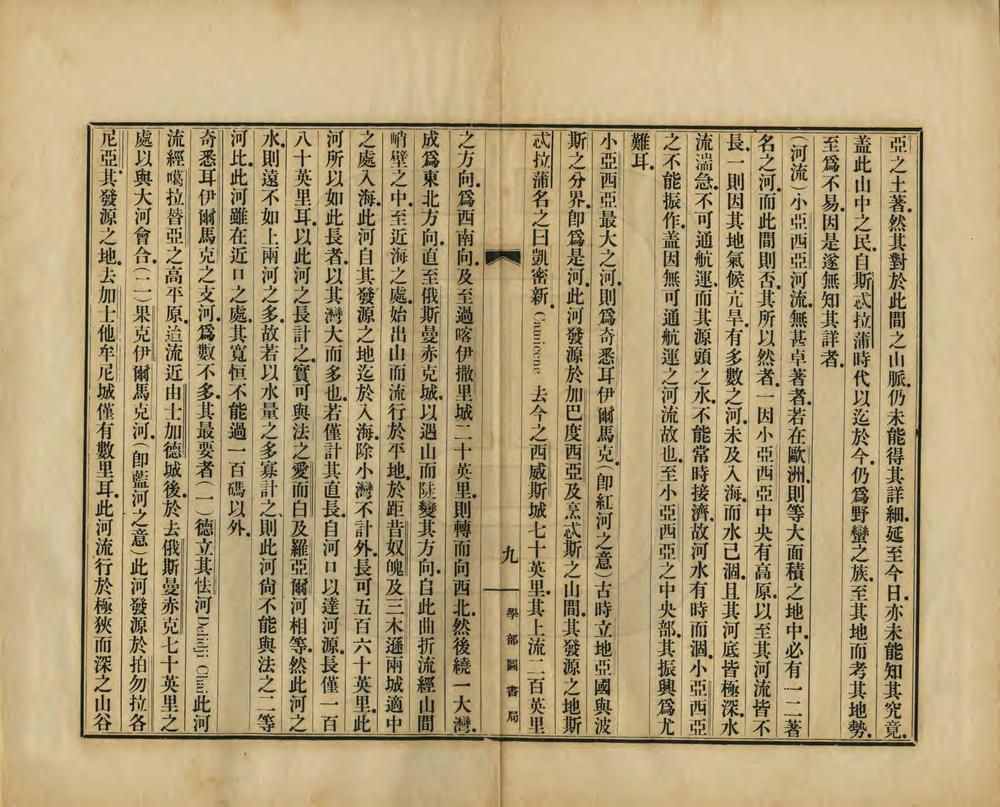 亞之土著然其對於此間之山脈仍未能得其詳細延至今日亦未能知其究竟
蓋此山中之民自斯忒拉蒲時代以迄於今仍爲野蠻之族至其地而考其地勢
至爲不易因是遂無知其詳者
(河流)小亞西亞河流無甚卓著者若在歐洲則等大面積之地中必有一二著
名之河而此間則否其所以然者一因小亞西亞中央有高原以至其河流皆不
長一則因其地氣候亢旱有多數之河未及入海而水已涸且其河底皆極深水
流湍急不可通航運而其源頭之水不能常時接濟故河水有時而涸小亞西亞
之不能振作蓋因無可通航運之河流故也至小亞西亞之中央部其振興爲尤
難耳
小亞西亞最大之河則爲奇悉耳伊爾馬克(即紅河之意)古時立地亞國與波
斯之分界即爲是河此河發源於加巴度西亞及烹忒斯之山間其發源之地斯
忒拉蒲名之曰凱密新Camicene去今之西威斯城七十英里其上流二百英里
九
學部圖書局
之方向爲西南向及至過喀伊撒里城二十英里則轉而向西北然後繞一大灣
成爲東北方向直至俄斯曼赤克城以遇山而陡變其方向自此曲折流經山間
峭壁之中至近海之處始出山而流行於平地於距昔奴魄及三木遜兩城適中
之處入海此河自其發源之地迄於入海除小灣不計外長可五百六十英里此
河所以如此長者以其灣大而多也若僅計其直長自河口以達河源長僅一百
八十英里耳以此河之長計之實可與法之愛而白及羅亞爾河相等然此河之
水則遠不如上兩河之多故若以水量之多寡計之則此河尙不能與法之二等
河比此河雖在近口之處其寬恒不能過一百碼以外
奇悉耳伊爾馬克之支河爲數不多其最要者(一)德立其怯河Delidji Chai此河
流經噶拉替亞之高平原迨流近由士加德城後於去俄斯曼赤克七十英里之
處以與大河會合(二)果克伊爾馬克河(即藍河之意)此河發源於拍勿拉各
尼亞其發源之地去加士他牟尼城僅有數里耳此河流行於極狹而深之山谷